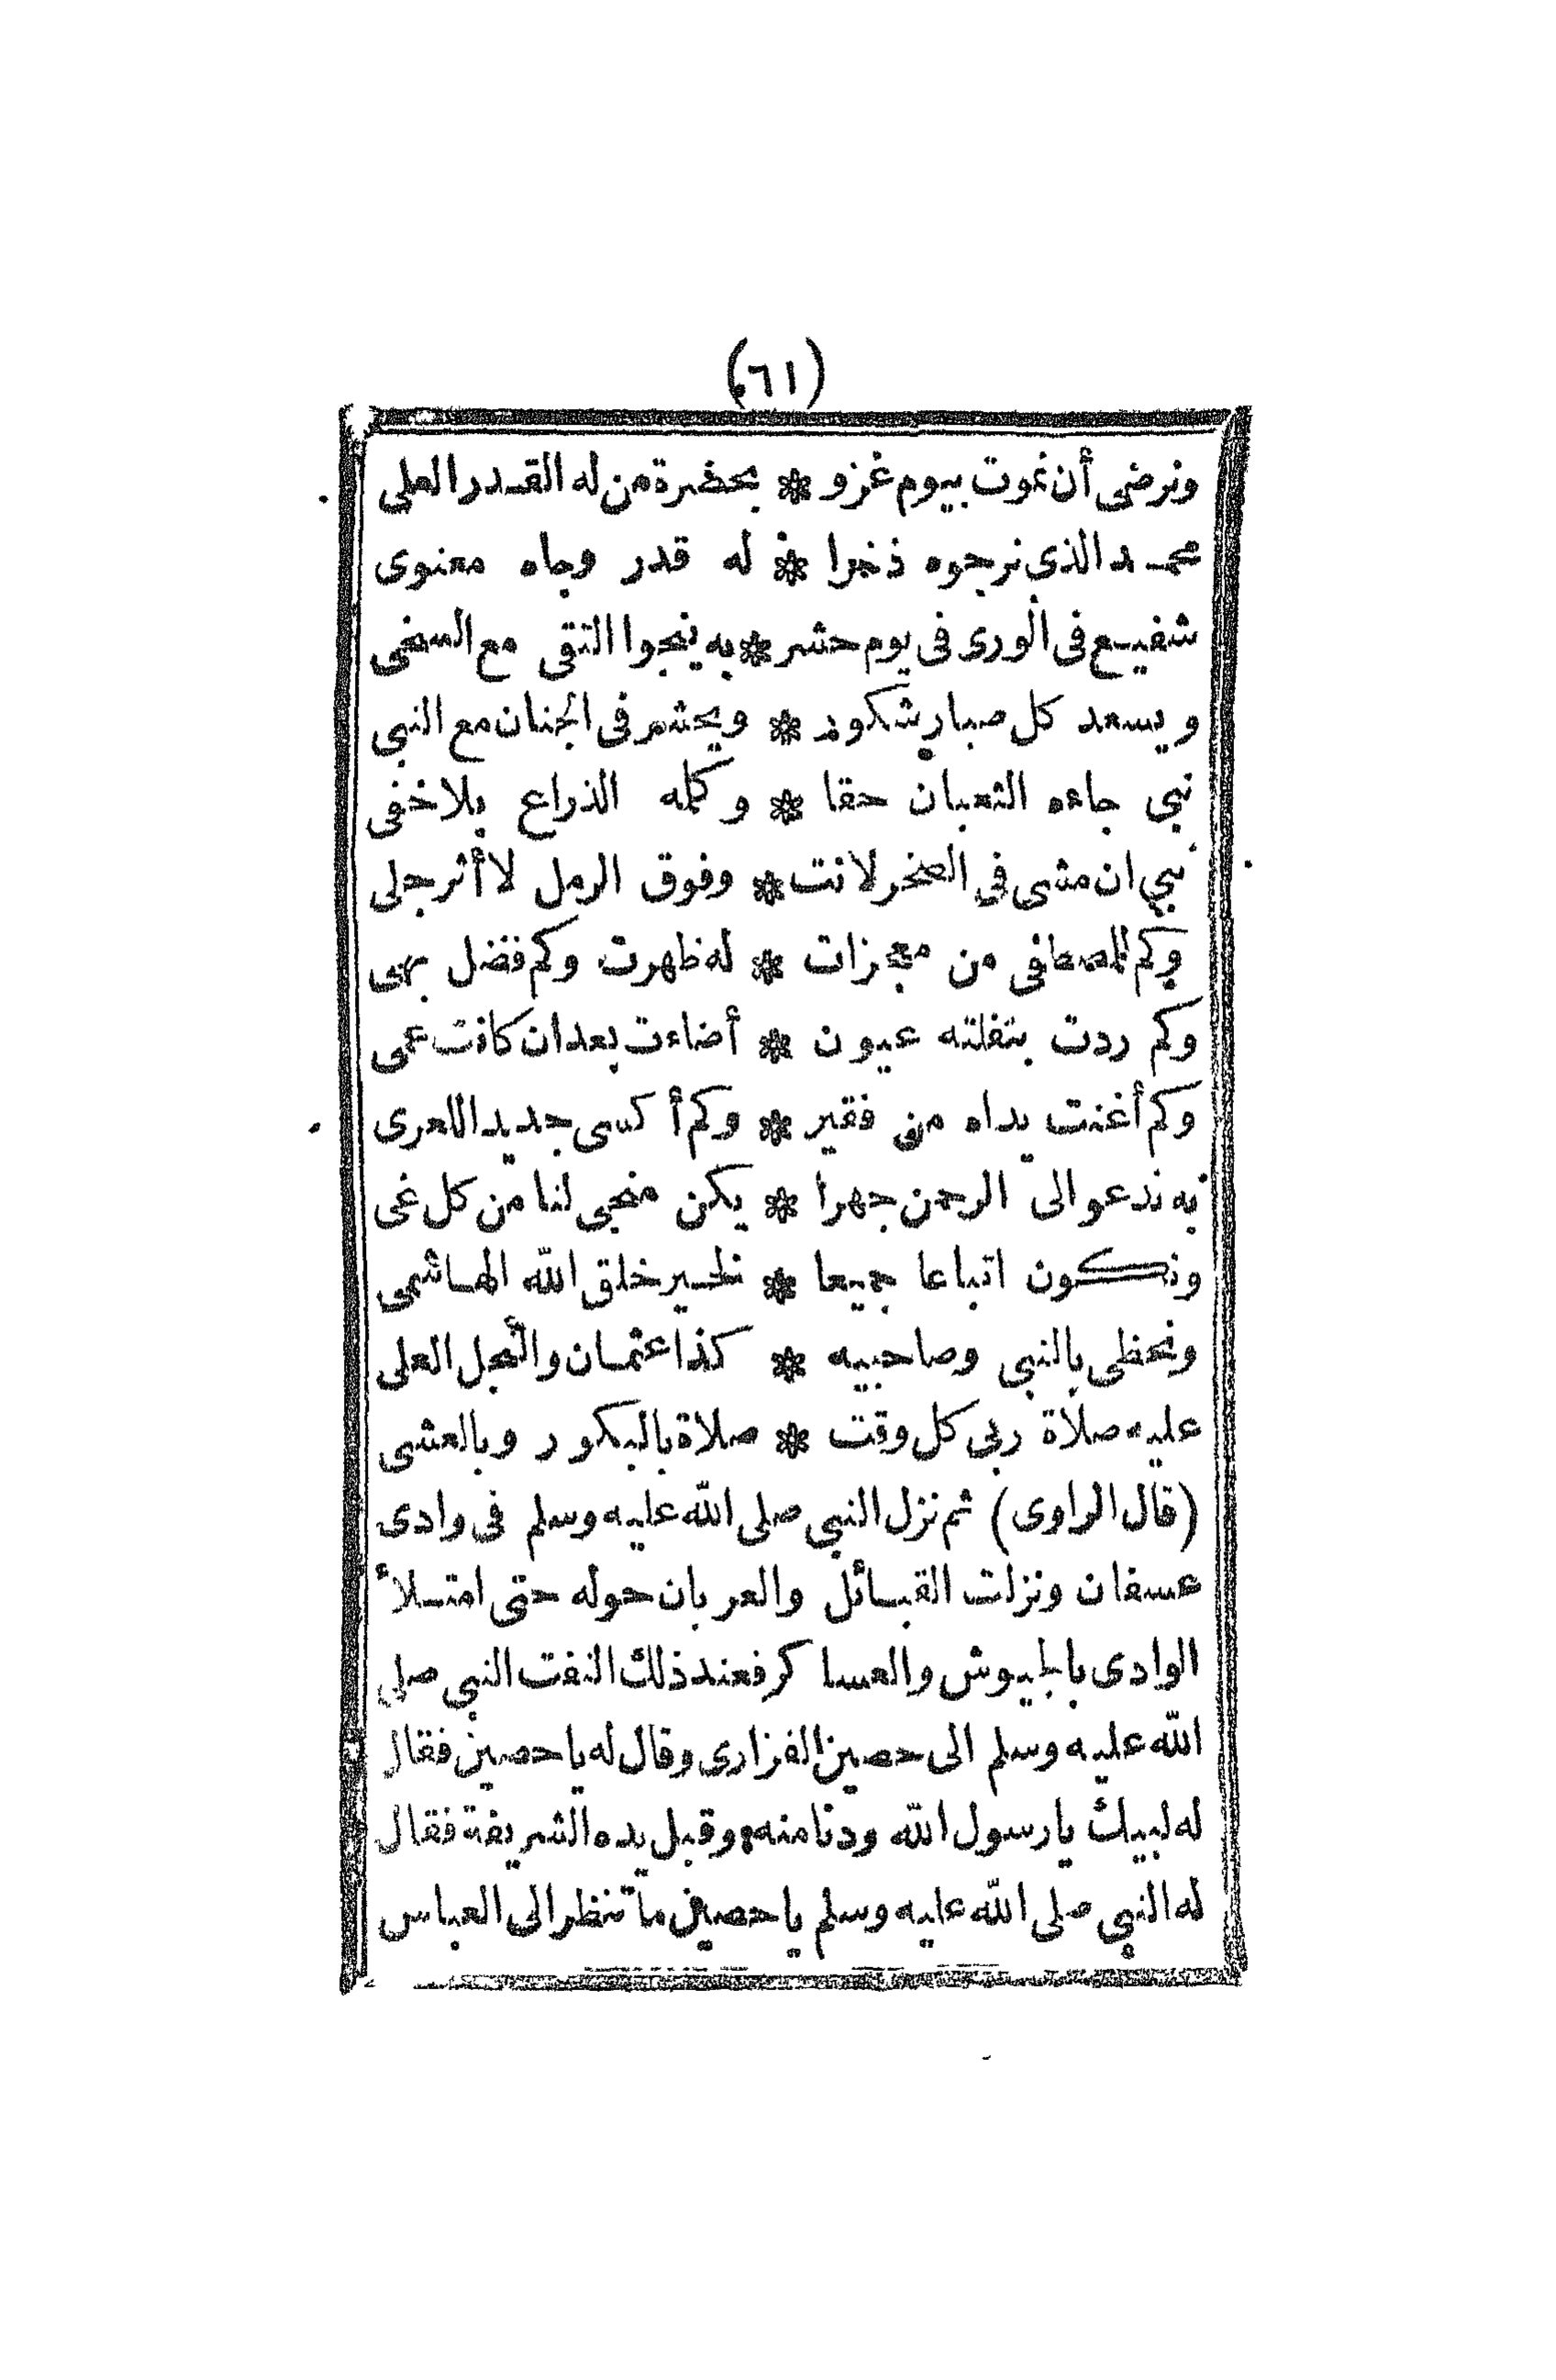 (٦١)
ونرضى أن نموت بيوم غزو * بحضرة من له القدر العلى
محمد الذى نرجوه ذخرا * له قدر وجاه معنوى
شفيع فى الورى فى يوم حشر * به ينجوا التقى مع السخى
ويسعد كل صبار شكور * ويحشر فى الجنان مع النبى
نبى جاءه الثعبان حقا * وكله الذراع بلا خفى
نبى ان مشى فى الصخر لانت * وفوق الرمل لا أثر جلى
وكم للمصطفى من معجزات * له ظهرت وكم فضل بهى
وكم ردت بتفلته عيون * أضاءت بعد ان كانت عمى
وكم أغنت يداه من فقير * وكم أكسى جديد اللعرى
به ندعو الى الرحمن جهرا * يكن منجى لنا من كل غى
ونكون اتباعا جميعا * لخير خلق الله الهاشمى
ونحظى بالنبى وصاحبيه * كذا عثمان والنجل العلى
عليه صلاة ربى كل وقت * صلاة بالبكور وبالعشى
(قال الراوى) ثم نزل النبى صلى الله عليه وسلم فى وادى
عسفان ونزلت القبائل والعربان حوله حتى امتلأ
الوادى بالجيوش والعساكر فعند ذلك التفت النبى صلى
الله عليه وسلم الى حصين الفزارى وقال له يا حصين فقال
له لبيك يا رسول الله ودنا منه وقبل يده الشريفة فقال
له النبى صلى الله عليه وسلم يا حصين ما تنظر الى العباس